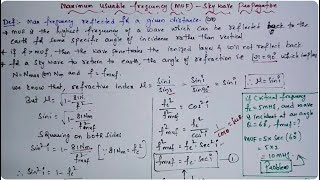 Maximum Usable Frequency (MUF) - Sky Wave Propagation
Def:- Max frequency reflected for a given distance (or)
• MUF is the highest frequency of a wave which can be reflected back to the
earth for some specific angle of incidence rather than vertical
• If f > fmuf, then the wave penetrates the ionized layer & will not reflect back
• for a sky wave to return to earth, the angle of refraction i.e. ∠r=90° which implies
N=Nmax for and f = fmuf.
We know that, refractive index μ = sin i / sin r = sin i / sin 90° = sin i ∴ μ = sin i
But μ = √1 - 81N / f²muf
Squaring on both sides
sin² i = 1 - 81Nm / f²muf [∵ 81Nm = fc²]
∴ sin² i = 1 - fc²
fc² / f²muf = 1 - sin² i
fc² / f²muf = cos² i
f²muf / fc² = 1 / cos² i
f²muf = fc² sec² i
fmuf = fc sec i → ①
if critical frequency
fc = 5MHz, and wave
is incident at an angle
θ = 60°, muf = ?
MUF = 5 x sec (60)
= 5 x 2
= 10MHz
Problem